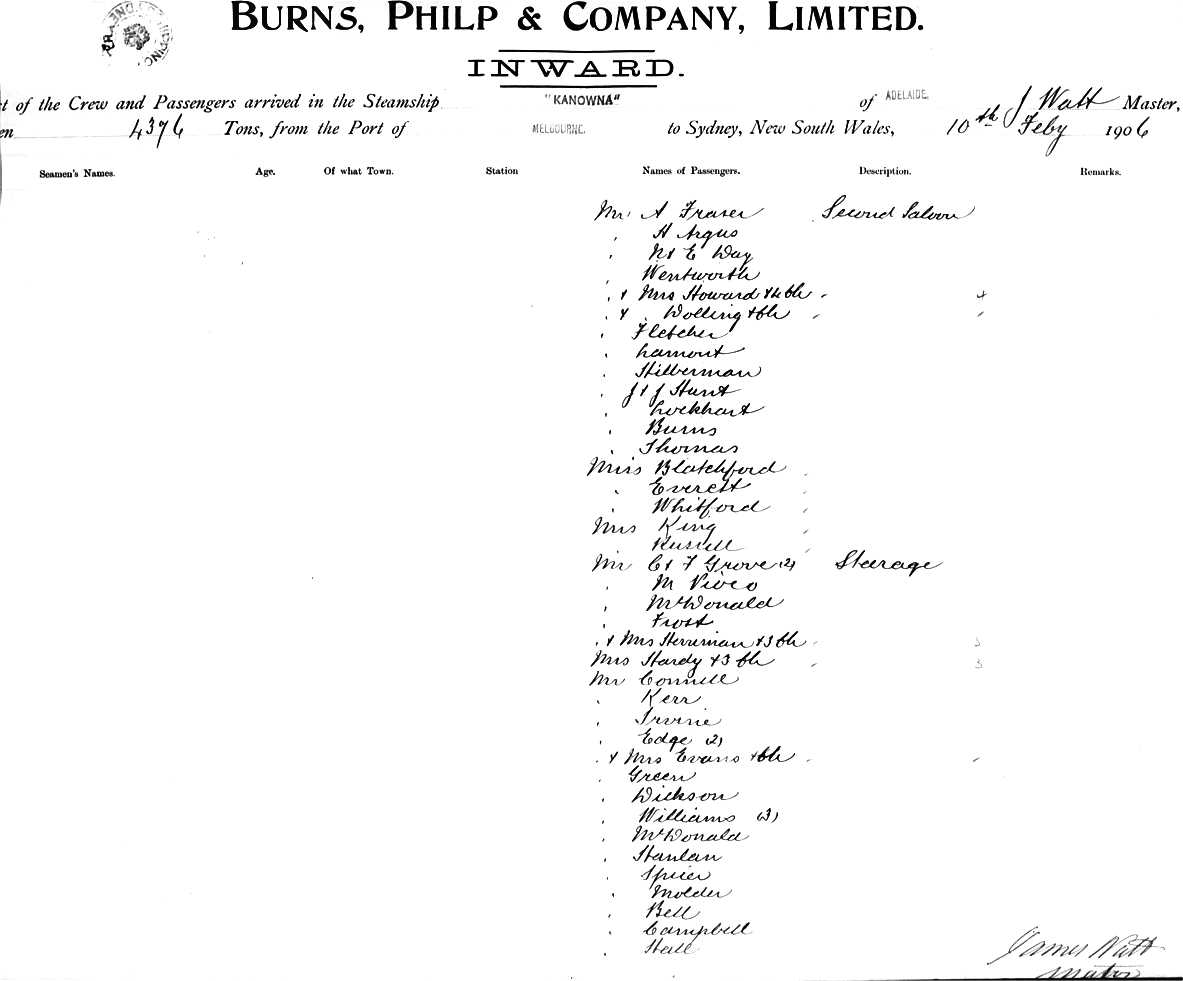 BURNS, PHILP & COMPANY, LIMITED.
INWARD.
t of the Crew and Passengers arrived in the Steamship "KANOWNA" of ADELAIDE. J Watt Master,
en 4376 Tons, from the Port of MELBOURNE. to Sydney, New South Wales, 10th Feby 1906
Seamen's Names. Age. Of what Town. Station Names of Passengers. Description. Remarks.
Mr A Fraser Second Saloon
" H Argus
" Day
" Wentworth
" & Mrs Howard & 4 ch " 4
" & " Wolling & ch " /
" Fletcher
" Lamont
" Silberman
" J & J Hunt
" Lockhart
" Burns
" Thomas
Miss Blatchford "
" Everett "
" Whitford "
Mrs King "
Russell "
Mr C & F Grove (2) Steerage
" M
" McDonald
" Frost
" & Mrs Herriman & 3 ch " 3
Mrs Hardy & 3 ch " 3
Mr Connell
" Kerr
" Irvine
" Edge (2)
" & Mrs Evans & ch " /
" Green
" Dickson
" Williams (3)
" McDonald
" Hanlan
" Spicer
" Molder
" Bell
" Campbell
" Hall
James Watt
Master